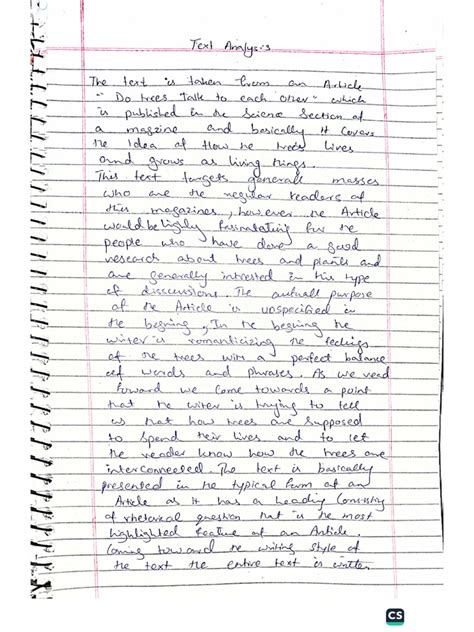 Text Analysis
The text is taken from an Article
"Do trees Talk to each other" which
is published in the Science Section of
a magzine and basically it covers
the Idea of How the trees lives
and grows as living things.
This text targets generall masses
who are the regular readers of
this magazines, however the Article
would be highly fassinating for the
people who have done a good
research about trees and plants and
are generally intrested in this type
of disscussions. The actuall purpose
of the Article is unspecified in
the begining, In the begining the
writer is romanticizing the feelings
of the trees with a perfect balance
of words and phrases. As we read
forward we come towards a point
that the writer is trying to tell
us that how trees are supposed
to spend their lives and to let
the reader know how the trees are
interconnected. The text is basically
presented in the typical form of an
Article as it has a Heading Consisting
of rhetorical question that is the most
highlighted feature of an Article.
Coming toward the writing style of
the text the entire text is written
CS